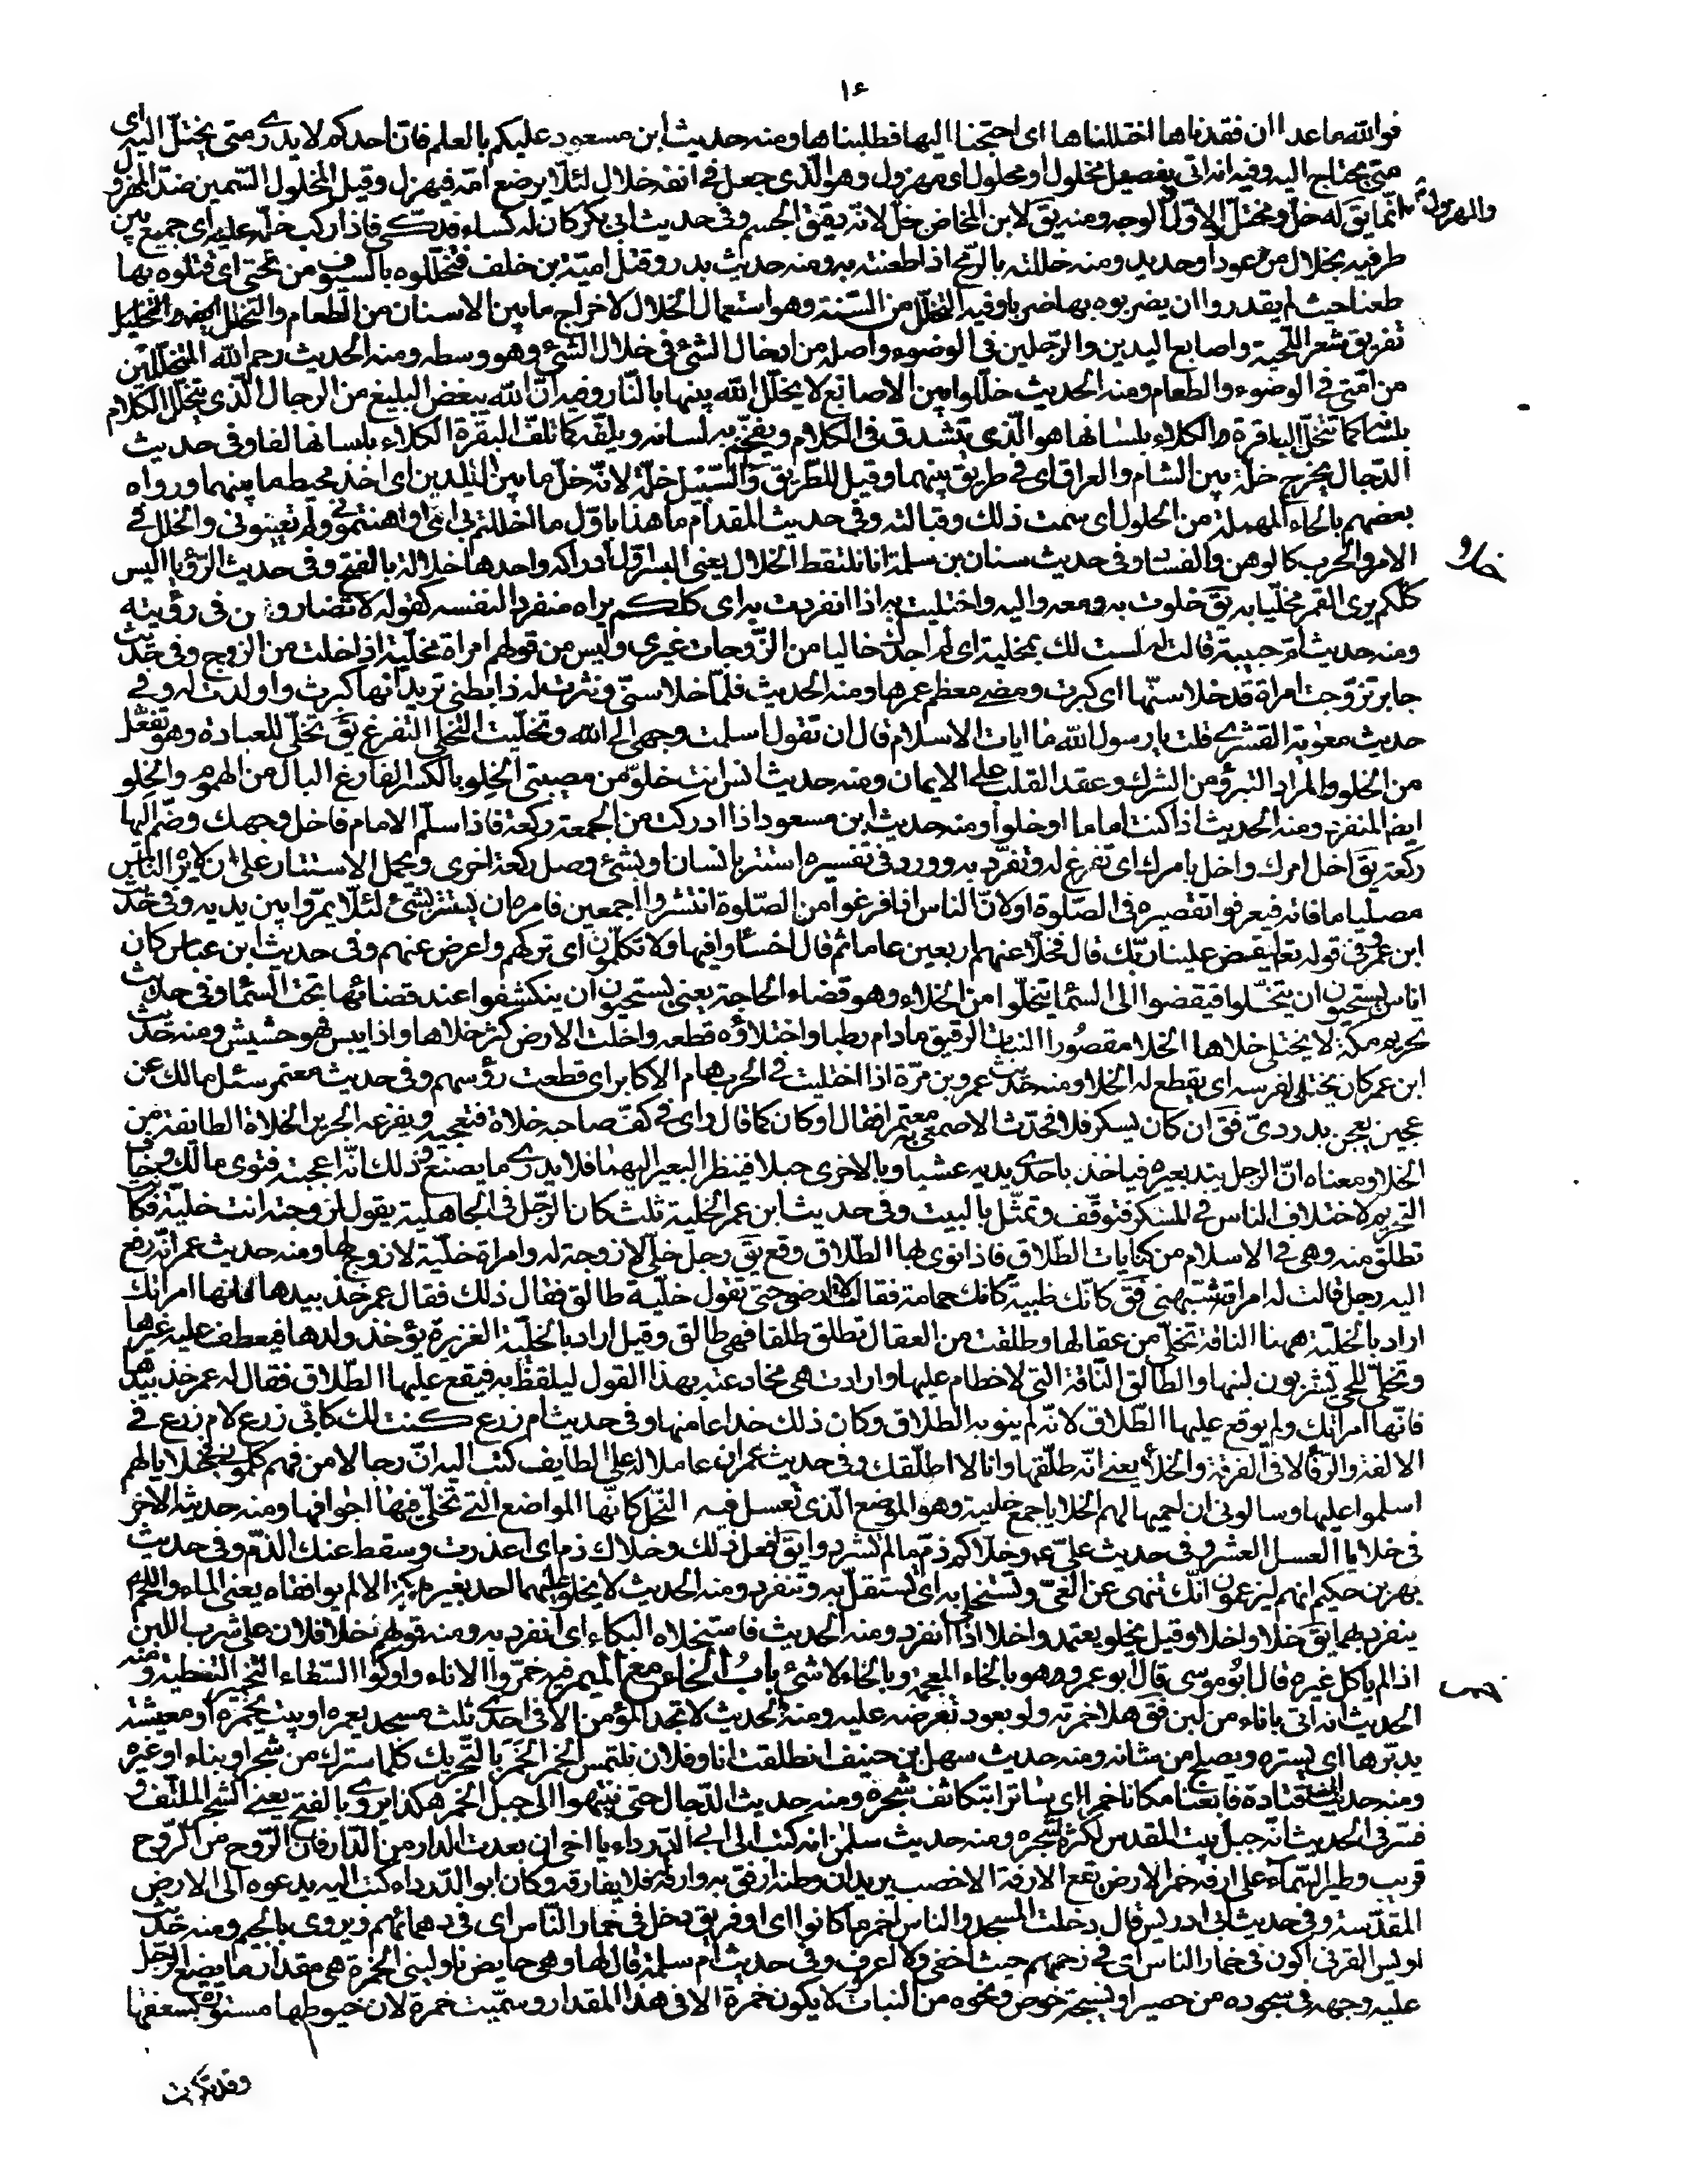 ١٤
فوالله ما عدا ان فقدناها اختللناها اى احتجنا اليها فطلبناها ومنه حديث ابن مسعود عليكم بالعلم فان احدكم لا يدرى متى يختل اليه اى
متى يحتاج اليه وفيه انه اتى بفصيل مخلول او محلول اى مهزول وهو الذى جعل فى انفه خلال لئلا يرضع امه فيهزل وقيل المخلول السمين ضد المهزول
والمهزول
انما يق له خل ومختل الاول الوجه ومنه يق لابن المخاض خل لانه دقيق الجسم وفى حديث ابى بكر كان له كساء فدكى فاذا ركب خله عليه اى جمع بين
طرفيه بخلال من عود او حديد ومنه خللته بالرمح اذا طعنته به ومنه حديث بدر وقتل امية بن خلف فتخللوه بالسيوف من تحتى اى قتلوه بها
طعنا حيث لم يقدروا ان يضربوه بها ضربا وفيه التخلل من السنة وهو استعمال الخلال لاخراج ما بين الاسنان من الطعام والتخلل ايضا والتخليل
تفريق شعر اللحية واصابع اليدين والرجلين فى الوضوء واصله من ادخال الشئ فى خلال الشئ وهو وسطه ومنه الحديث رحم الله المتخللين
من امتى فى الوضوء والطعام ومنه الحديث خللوا بين الاصابع لا يخلل الله بينها بالنار وفيه ان الله يبغض البليغ من الرجال الذى يتخلل الكلام
بلسانه كما تتخلل الباقرة الكلاء بلسانها هو الذى يتشدق فى الكلام ويفخم به لسانه ويلفه كما تلف البقرة الكلاء بلسانها لفا وفى حديث
الدجال يخرج خلة بين الشام والعراق اى فى طريق بينهما وقيل للطريق والسبيل خلة لانه خل ما بين البلدين اى اخذ مخيط ما بينهما ورواه
بعضهم بالحاء المهملة من الحلول اى سمت ذلك وقبالته وفى حديث المقدام ما هذا باول ما اخللتم بى اى اوهنتمونى ولم تعينونى والخلل فى
الامر والحرب كالوهن والفساد وفى حديث سنان بن سلمة انا نلتقط الخلال يعنى البسر اول ادراكه واحدها خلالة بالفتح وفى حديث الرؤيا اليس
خلو
كلكم يرى القمر مخليا به يق خلوت به ومعه واليه واختليت به اذا انفردت به اى كلكم يراه منفردا لنفسه كقوله لا تضارون فى رؤيته
ومنه حديث ام حبيبة قالت له لست لك بمخلية اى لم اجدك خاليا من الزوجات غيرى وليس من قولهم امراة مخلية اذا خلت من الزوج وفى حديث
جابر تزوجت امراة قد خلا منها اى كبرت ومضى معظم عمرها ومنه الحديث فلما خلا سنى ونثرت له ذا بطنى تريد انها كبرت واولدت له وفى
حديث معوية القشيرى قلت يا رسول الله ما ايات الاسلام قال ان تقول اسلمت وجهى الى الله وتخليت التخلى التفرغ يق تخلى للعبادة وهو تفعل
من الخلو والمراد التبرؤ من الشرك وعقد القلب على الايمان ومنه حديث انس انت خلو من مصيبتى الخلو بالكسر الفارغ البال من الهموم والخلو
ايضا المنفرد ومنه الحديث اذا كنت اماما او خلوا ومنه حديث ابن مسعود اذا ادركت من الجمعة ركعة فاذا سلم الامام فاخل وجهك وضم اليها
ركعة يق اخل امرك واخل بامرك اى تفرغ له وتفرد به وورد فى تفسيره استتر بانسان او بشئ وصل ركعة اخرى ويحمل الاستتار على ان لا يراه الناس
مصليا ما فاته فيعرفوا تقصيره فى الصلوة او لان الناس اذا فرغوا من الصلوة انتشروا اجمعين فامره ان يستتر بشئ لئلا يمروا بين يديه وفى حديث
ابن عمر فى قوله تعالى ليقض علينا ربك قال فخلا عنهم اربعين عاما ثم قال اخسئوا فيها ولا تكلمون اى تركهم واعرض عنهم وفى حديث ابن عباس كان
اناس يستحيون ان يتخلوا فيفضوا الى السماء يتخلوا من الخلاء وهو قضاء الحاجة يعنى يستحيون ان ينكشفوا عند قضائها تحت السماء وفى حديث
تحريم مكة لا يختلى خلاها الخلا مقصورا النبات الرقيق ما دام رطبا واختلاؤه قطعه واخلت الارض كثر خلاها واذا يبس فهو حشيش ومنه حديث
ابن عمر كان يختلى لفرسه اى يقطع له الخلا ومنه حديث عمرو بن مرة اذا اختليت فى الحرب هام الاكابر اى قطعت رؤسهم وفى حديث معتمر سئل مالك عن
عجين يعجن بدردى فق ان كان يسكر فلا فحدث الاصمعى به معتمرا فقال او كان كما قال راى فى كف صاحبه خلاة فتعجبه ويفزعه الجرير الخلاة الطائفة من
الخلا ومعناه ان الرجل يند بعيره فياخذ باحدى يديه عشبا وبالاخرى حبلا فينظر البعير اليهما فلا يدرى ما يصنع وذلك انه اعجبته فتوى مالك وخاف
التحريم لاختلاف الناس فى المسكر فتوقف وتمثل بالبيت وفى حديث ابن عمر الخلية ثلث كان الرجل فى الجاهلية يقول لزوجته انت خلية فكانت
تطلق منه وهى فى الاسلام من كنايات الطلاق فاذا نوى بها الطلاق وقع يق رجل خلى لا زوجة له وامراة خلية لا زوج لها ومنه حديث عمر انه رفع
اليه رجل قالت له امراته شبهنى فق كانك ظبية كانك حمامة فقالت لا ارضى حتى تقول خلية طالق فقال ذلك فقال عمر خذ بيدها فانها امراتك
اراد بالخلية ههنا الناقة تخلى من عقالها وطلقت من العقال تطلق طلقا فهى طالق وقيل اراد بالخلية الغزيرة يؤخذ ولدها فيعطف عليه غيرها
وتخلى للحى يشربون لبنها والطالق الناقة التى لا خطام عليها وارادت هى مخادعته بهذا القول ليلفظ به فيقع عليها الطلاق فقال له عمر خذ بيدها
فانها امراتك ولم يوقع عليها الطلاق لانه لم ينو به الطلاق وكان ذلك خداعا منها وفى حديث ام زرع كنت لك كابى زرع لام زرع فى
الالفة والرفاء لا فى الفرقة والخلاء يعنى انه طلقها وانا لا اطلقك وفى حديث عمر ان عاملا له على الطايف كتب اليه ان رجالا من فهم كلمونى فى خلايا لهم
اسلموا عليها وسالونى ان احميها لهم الخلايا جمع خلية وهو الموضع الذى تعسل فيه النحل كانها المواضع التى تخلى فيها اجوافها ومنه حديثه الاخر
فى خلايا العسل العشر وفى حديث على ع وخلاكم ذم ما لم تشردوا يق افعل ذلك وخلاك ذم اى اعذرت وسقط عنك الذم وفى حديث
بهز بن حكيم انهم ليزعمون انك تنهى عن الغى وتستخلى به اى تستقل به وتنفرد ومنه الحديث لا يخلو عليهما احد بغير مكة الا لم يوافقاه يعنى الماء واللحم
ينفرد بهما يق خلا واخلا وقيل يخلو يعتمد واخلا اذا انفرد ومنه الحديث فاستخلاه البكاء اى انفرد به ومنه قولهم اخلا فلان على شرب اللبن
اذا لم ياكل غيره قال ابو موسى قال ابو عمرو وهو بالخاء المعجمة وبالحاء لا شئ باب الخاء مع الميم فيه خمروا الاناء واوكوا السقاء التخمير التغطية ومنه
خمر
الحديث انه اتى باناء من لبن فق هلا خمرته ولو بعود تعرضه عليه ومنه الحديث لا تجد المؤمن الا فى احدى ثلث مسجد يعمره او بيت يخمره او معيشة
يدبرها اى يستره ويصلح من شانه ومنه حديث سهل بن حنيف انطلقت انا وفلان نلتمس الخمر الخمر بالتحريك كلما سترك من شجر او بناء او غيره
ومنه حديث ابى قتادة فابغنا مكانا خمرا اى ساترا بتكاثف شجره ومنه حديث الدجال حتى ينتهوا الى جبل الخمر هكذا يروى بالفتح يعنى الشجر الملتف و
فسر فى الحديث انه جبل بيت المقدس لكثرة شجره ومنه حديث سلمن انه كتب الى ابى الدرداء يا اخى ان بعدت الدار من الدار فان الروح من الروح
قريب وطير السماء على ارفه خمر الارض تقع الارفه الاخصب يريد ان وطنه ارفق به وارفه له فلا يفارقه وكان ابو الدرداء كتب اليه يدعوه الى الارض
المقدسة وفى حديث ابى ادريس قال دخلت المسجد والناس اخمر ما كانوا اى اوفر يق دخل فى خمار الناس اى فى دهمائهم ويروى بالجيم ومنه حديث
اويس القرنى اكون فى خمار الناس اى فى زحمتهم حيث اخفى ولا اعرف وفى حديث ام سلمة قال لها وهى حايض ناولينى الخمرة هى مقدار ما يضع الرجل
عليه وجهه فى سجوده من حصير او نسيجة خوص ونحوه من النبات ولا يكون خمرة الا فى هذا المقدار وسميت خمرة لان خيوطها مستورة بسعفها
وقد تكررت